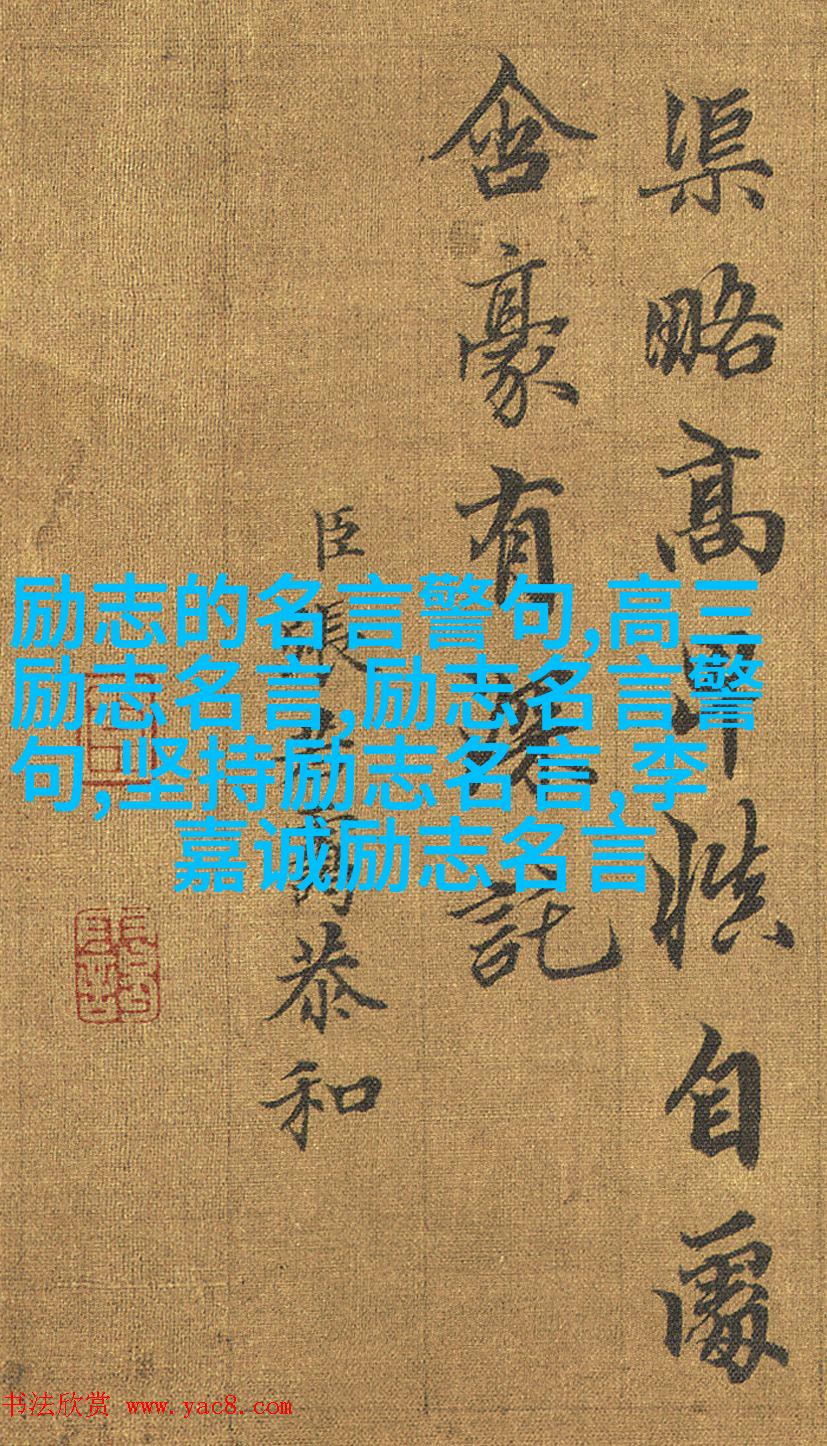 渠略高自處
含豪有託
臣張恭和
励志的名言警句,高三
励志名言,励志名言警
句,坚持励志名言,李
嘉诚励志名言
书法欣赏 www.yac8.com